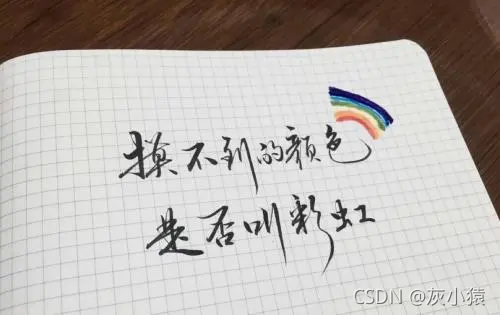 摸不到的颜色
是否叫彩虹
CSDN @灰小猿